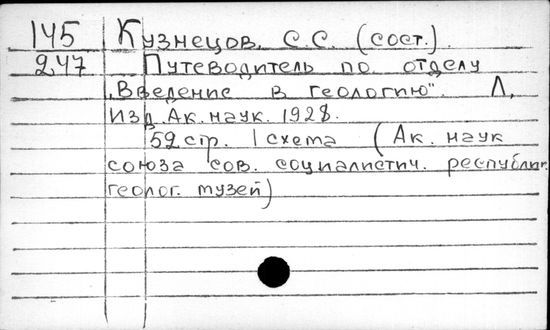 145 Кузнецов, С.С. (сост.).
247 Путеводитель по отделу
„Введение в геологию". Л,
Изд. Ак. наук. 1928.
52 стр. 1 схема (Ак. наук
союза сов. социалистич. республик.
геолог. музей)